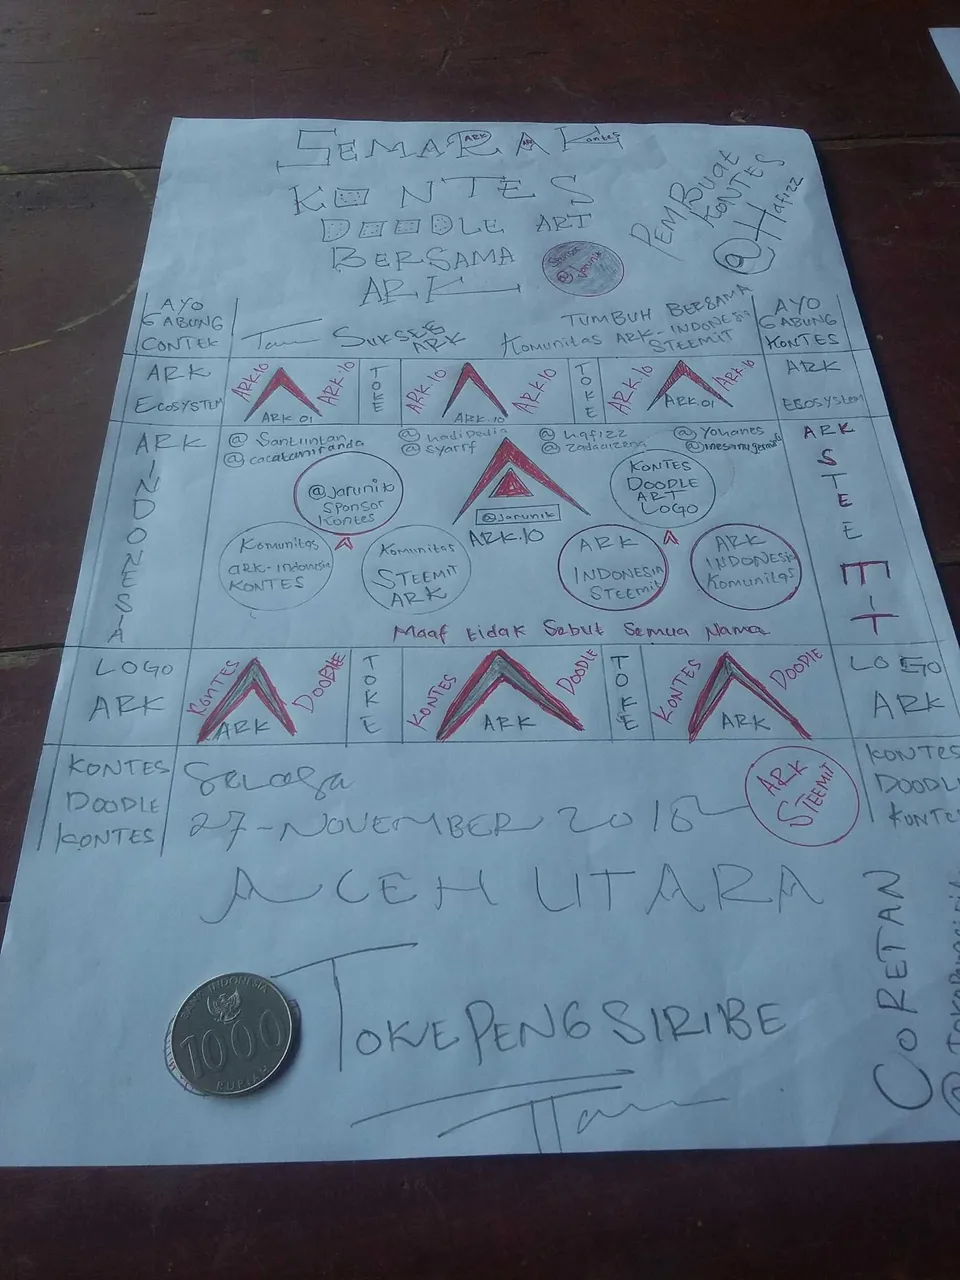 SEMARAK
ARK
Kontes
KONTES
DOODLE ART
BERSAMA
ARK
Sponsor
@Jarunik
PEMBUAT
KONTES
@Hafizz
AYO
GABUNG
CONTEK
SUKSES
ARK
TUMBUH BERSAMA
Komunitas ARK-INDONESIA
STEEMIT
AYO
GABUNG
KONTES
ARK
ECOSYSTEM
ARK.10
ARK.10
ARK.01
TOKE
ARK.10
ARK.10
ARK.10
TOKE
ARK.10
ARK.10
ARK.01
ARK
ECOSYSTEM
ARK
INDONESIA
@Santuintan
@cacatamiranda
@hadipedia
@syarrf
@hafizz
@zadaaizena
@Yohanes
ARK
STEEMIT
@jarunik
SPONSOR
Kontes
@Jarunik
ARK.10
KONTES
DOODLE
ART
LOGO
Komunitas
ARK-Indonesia
KONTES
Komunitas
STEEMIT
ARK
ARK
INDONESIA
STEEMIT
ARK
INDONESIA
Komunitas
Maaf tidak Sebut Semua Nama
LOGO
ARK
KONTES
DOODLE
ARK
TOKE
KONTES
DOODLE
ARK
TOKE
KONTES
DOODLE
ARK
LOGO
ARK
KONTES
DOODLE
KONTES
Selasa
27-NOVEMBER 2018
ARK
STEEMIT
KONTES
DOODLE
KONTES
ACEH UTARA
BANK INDONESIA
1000
RUPIAH
TOKEPENGSIRIBE
CORETAN